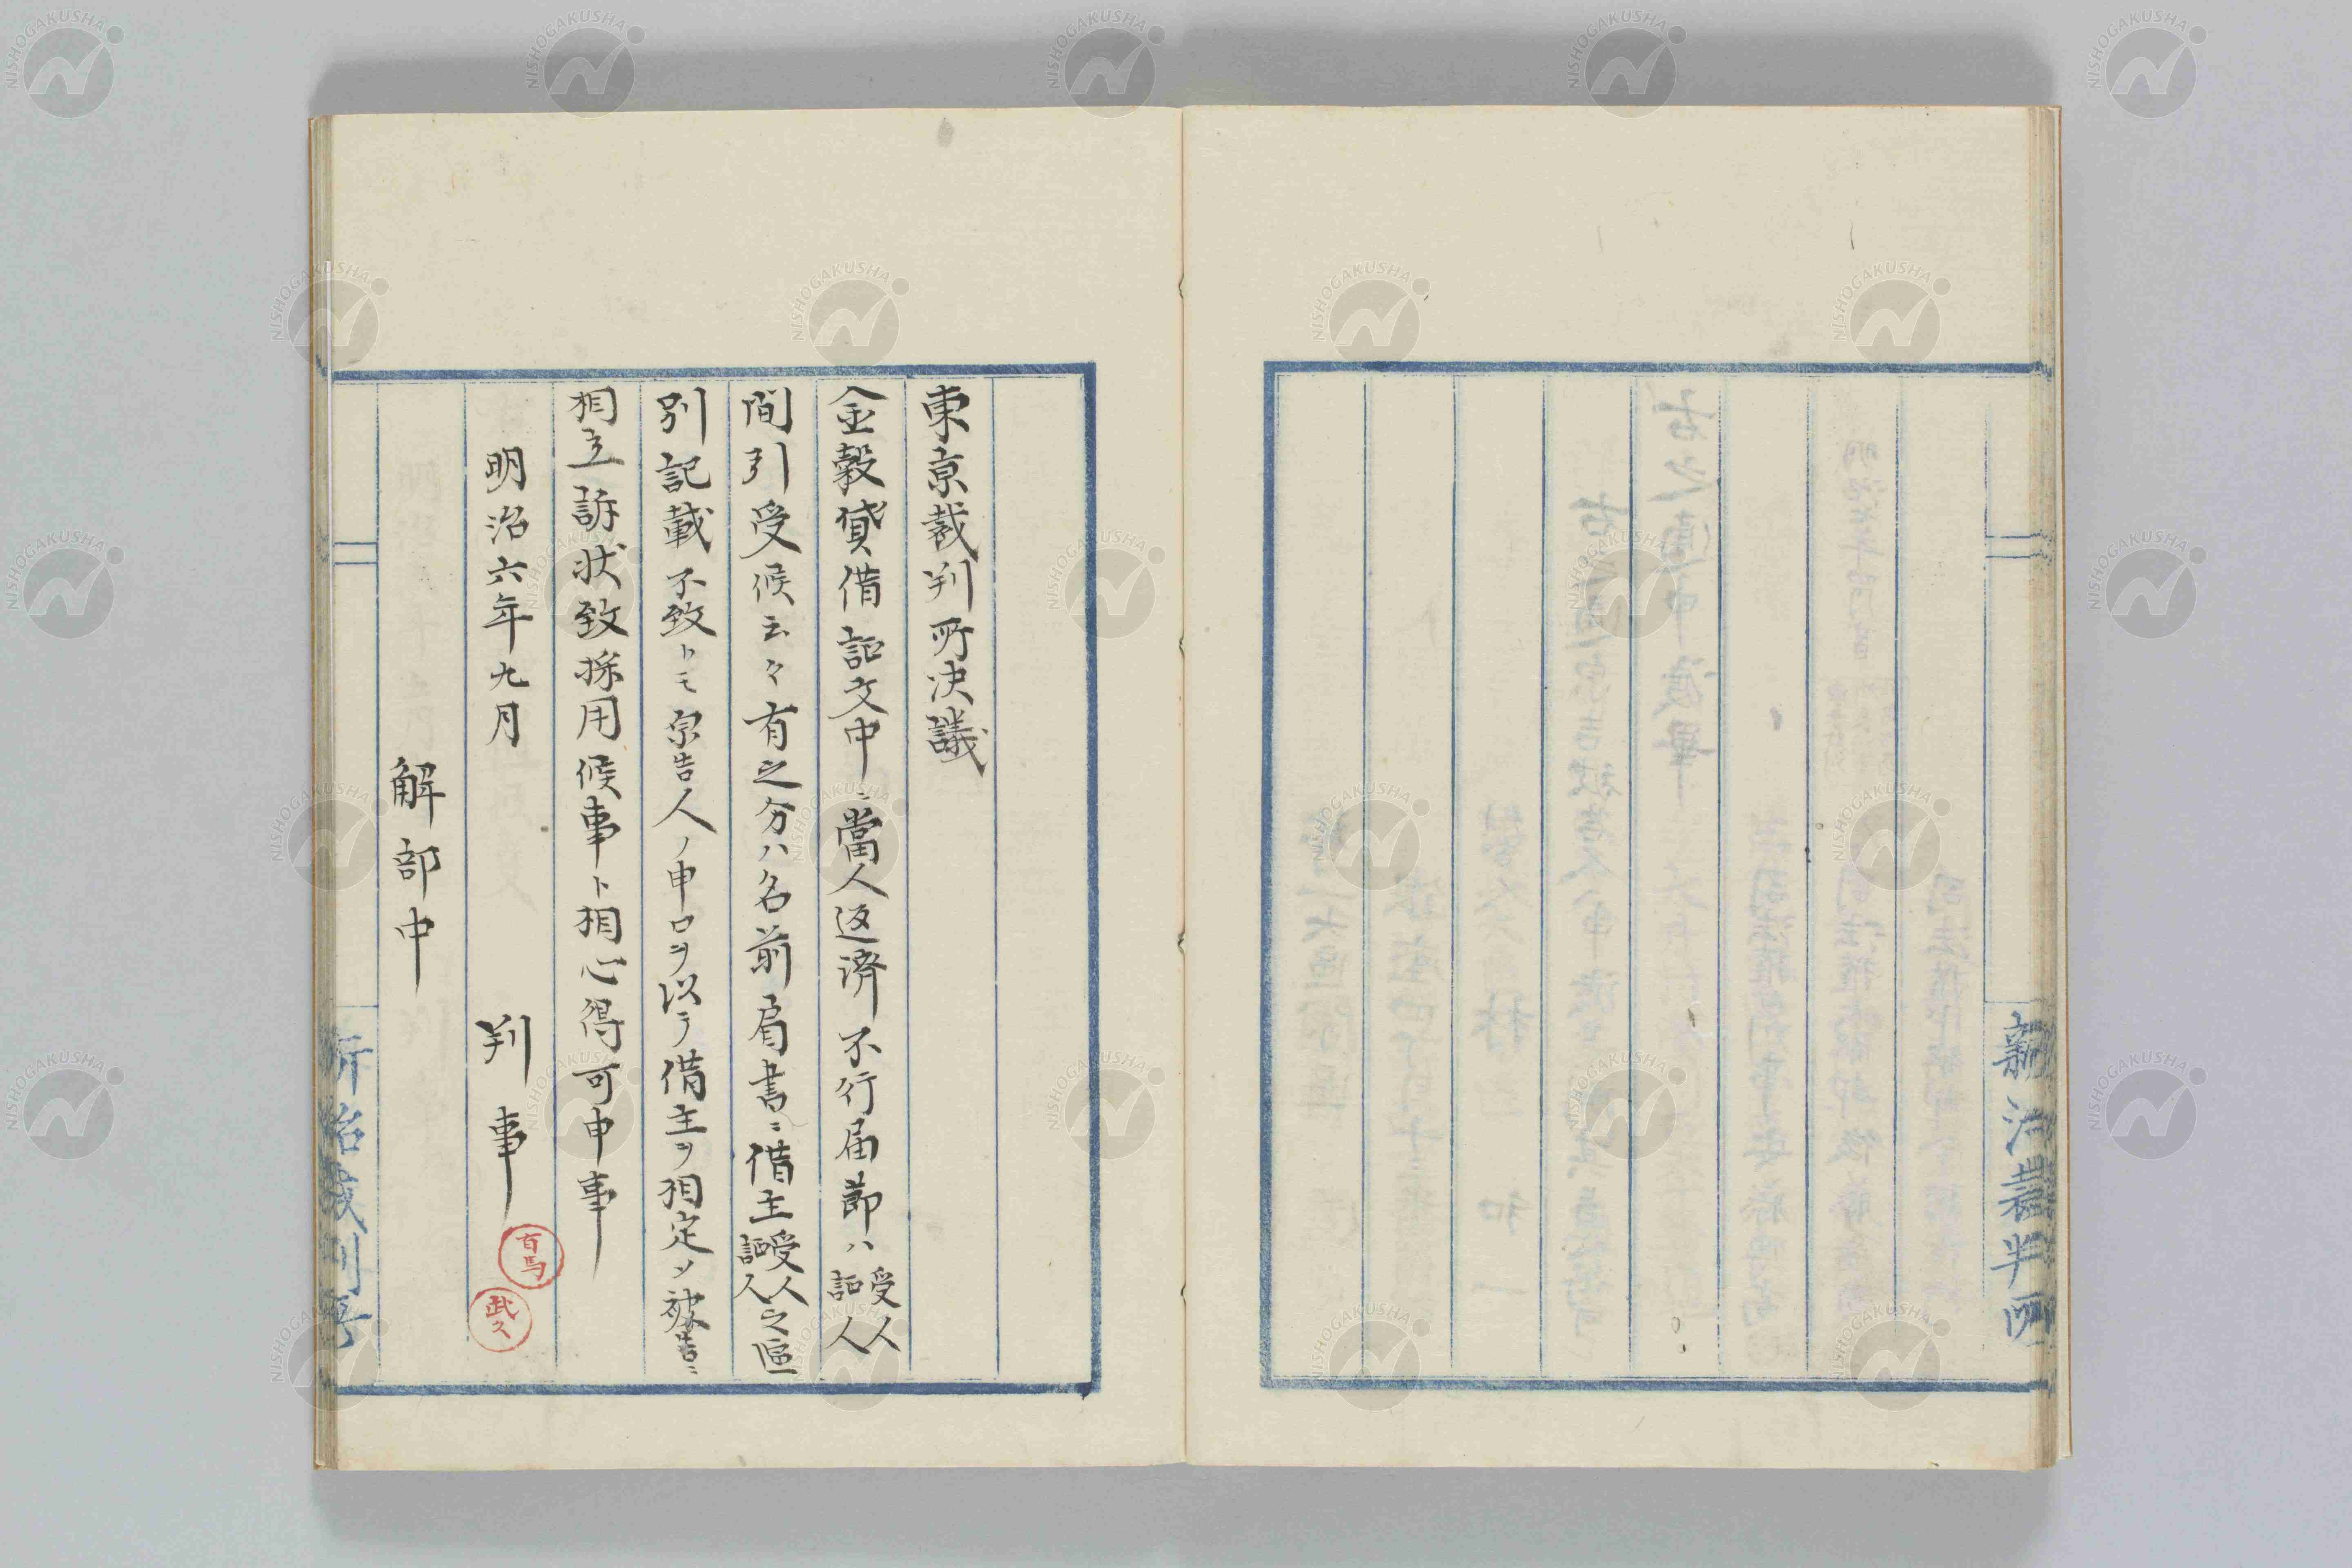 新治裁判所
東京裁判所決議
金穀貸借証文中ニ當人返済不行届節ハ受人証人
間引受候云々有之分ハ名前肩書ニ借主受人証人之區
別記載不致トモ原告人ノ申口ヲ以テ借主ヲ相定メ被告ニ
相立訴状致採用候事ト相心得可申事
明治六年九月
判事
有馬
武久
解部中
新治裁判所
NISHOGAKUSHA